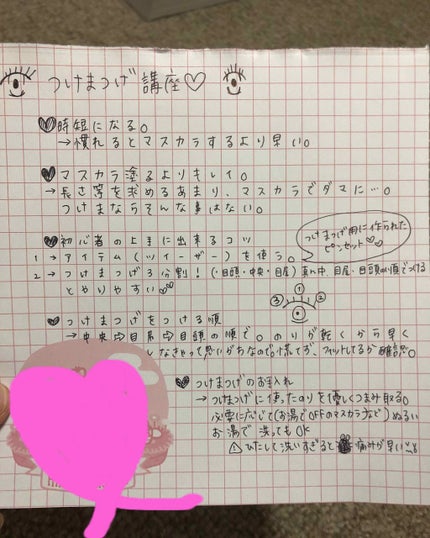 つけまつげ講座♡
♥時短になる。
→慣れるとマスカラするより早い。
♥マスカラ塗るよりキレイ。
→長さ等を求めるあまり、マスカラでダマに…。
つけまならそんな事はない。
♥初心者の上手に出来るコツ
1→アイテム(ツイーザー)を使う。
つけまつげ用に作られた
ピンセット♡♡
2→つけまつげ3分割!(・目頭・中央・目尻)真ん中、目尻、目頭の順でつける
とやりやすい♡♡
① ② ③
♥つけまつげをつける順
→中央⇨目尻⇨目頭の順で。のりが乾くから早く
しなきゃって思いがちなので慌てず、フィットしてるか確認。
♥つけまつげのお手入れ
→つけまつげに使ったのりを優しくつまみ取る。
必要に応じて(お湯でOFFのマスカラなど)ぬるい
お湯で洗ってもOK
⚠ひたして洗いすぎると痛みが早い